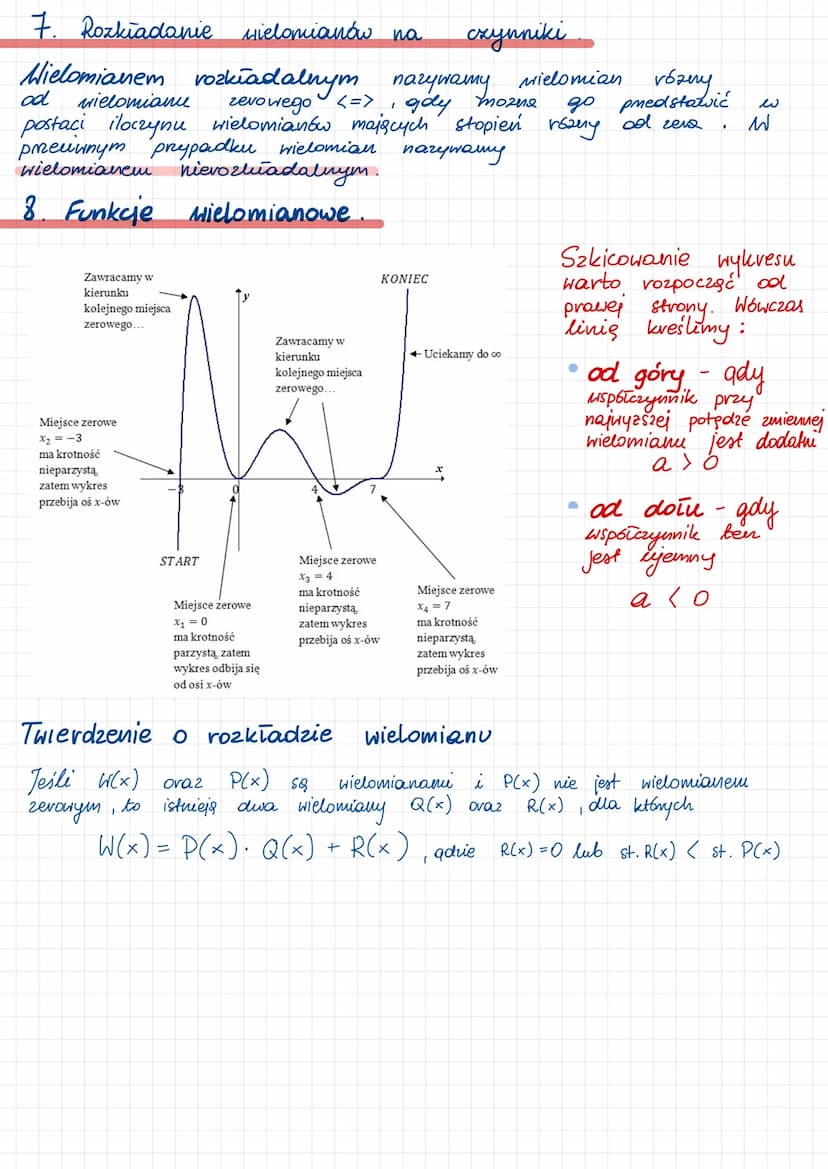 7. Rozkładanie wielomianów na czynniki.
Wielomianem rozkładalnym nazywamy wielomian różny
od wielomianu zerowego <=>, gdy można go przedstawić w
postaci iloczynu wielomianów mających stopień różny od zera. W
przeciwnym przypadku wielomian nazywamy
wielomianem nierozkładalnym.
8. Funkcje wielomianowe.
Zawracamy w
kierunku
kolejnego miejsca
zerowego…
y
KONIEC
Zawracamy w
kierunku
kolejnego miejsca
zerowego…
Uciekamy do ∞
Miejsce zerowe
x₂ = −3
ma krotność
nieparzystą,
zatem wykres
przebija oś x-ów
−3
0
4
7
x
START
Miejsce zerowe
x₁ = 0
ma krotność
parzystą, zatem
wykres odbija się
od osi x-ów
Miejsce zerowe
x₃ = 4
ma krotność
nieparzystą,
zatem wykres
przebija oś x-ów
Miejsce zerowe
x₄ = 7
ma krotność
nieparzystą,
zatem wykres
przebija oś x-ów
Szkicowanie wykresu
warto rozpocząć od
prawej strony. Wówczas
linię kreślimy:
• od góry - gdy
współczynnik przy
najwyższej potędze zmiennej
wielomianu jest dodatni
a > 0
• od dołu - gdy
współczynnik ten
jest ujemny
a < 0
Twierdzenie o rozkładzie wielomianu
Jeśli W(x) oraz P(x) są wielomianami i P(x) nie jest wielomianem
zerowym, to istnieją dwa wielomiany Q(x) oraz R(x), dla których
W(x) = P(x) · Q(x) + R(x), gdzie R(x) = 0 lub st. R(x) < st. P(x)